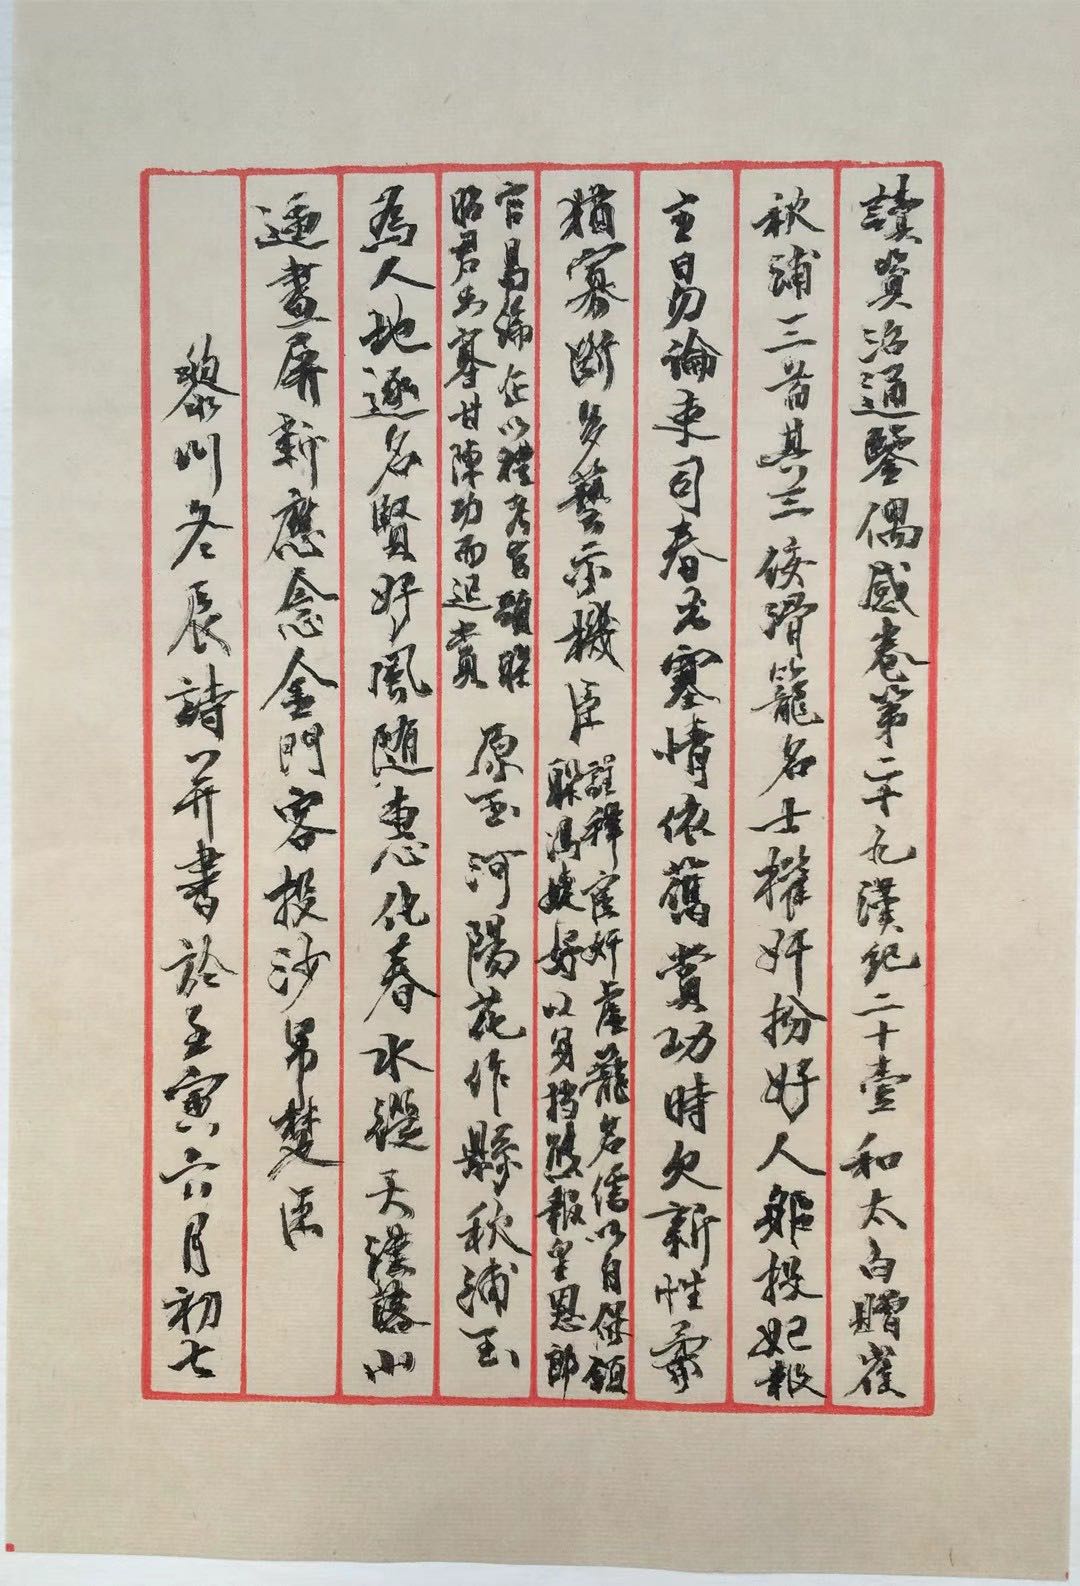 讀資治通鑒偶感卷第二十九漢紀二十壹和太白贈崔
秋浦三首其三佞滑籠名士權奸扮好人躯投妃報
主易論東司春老塞情依舊賞功時欠新性
猶寡断多藝示機臣
註釋宦奸虛籠名儒以自保
躲馮婕妤以身擋熊報皇恩郎
官易 任以禮
昭君出塞甘陳功而迟賞
原玉河陽花作縣秋浦玉
為人地逐名賢好風随惠化春水縱天漢落小
逥畫屏新應念金門客投沙吊楚臣
黎川冬辰詩并書於壬寅六月初七